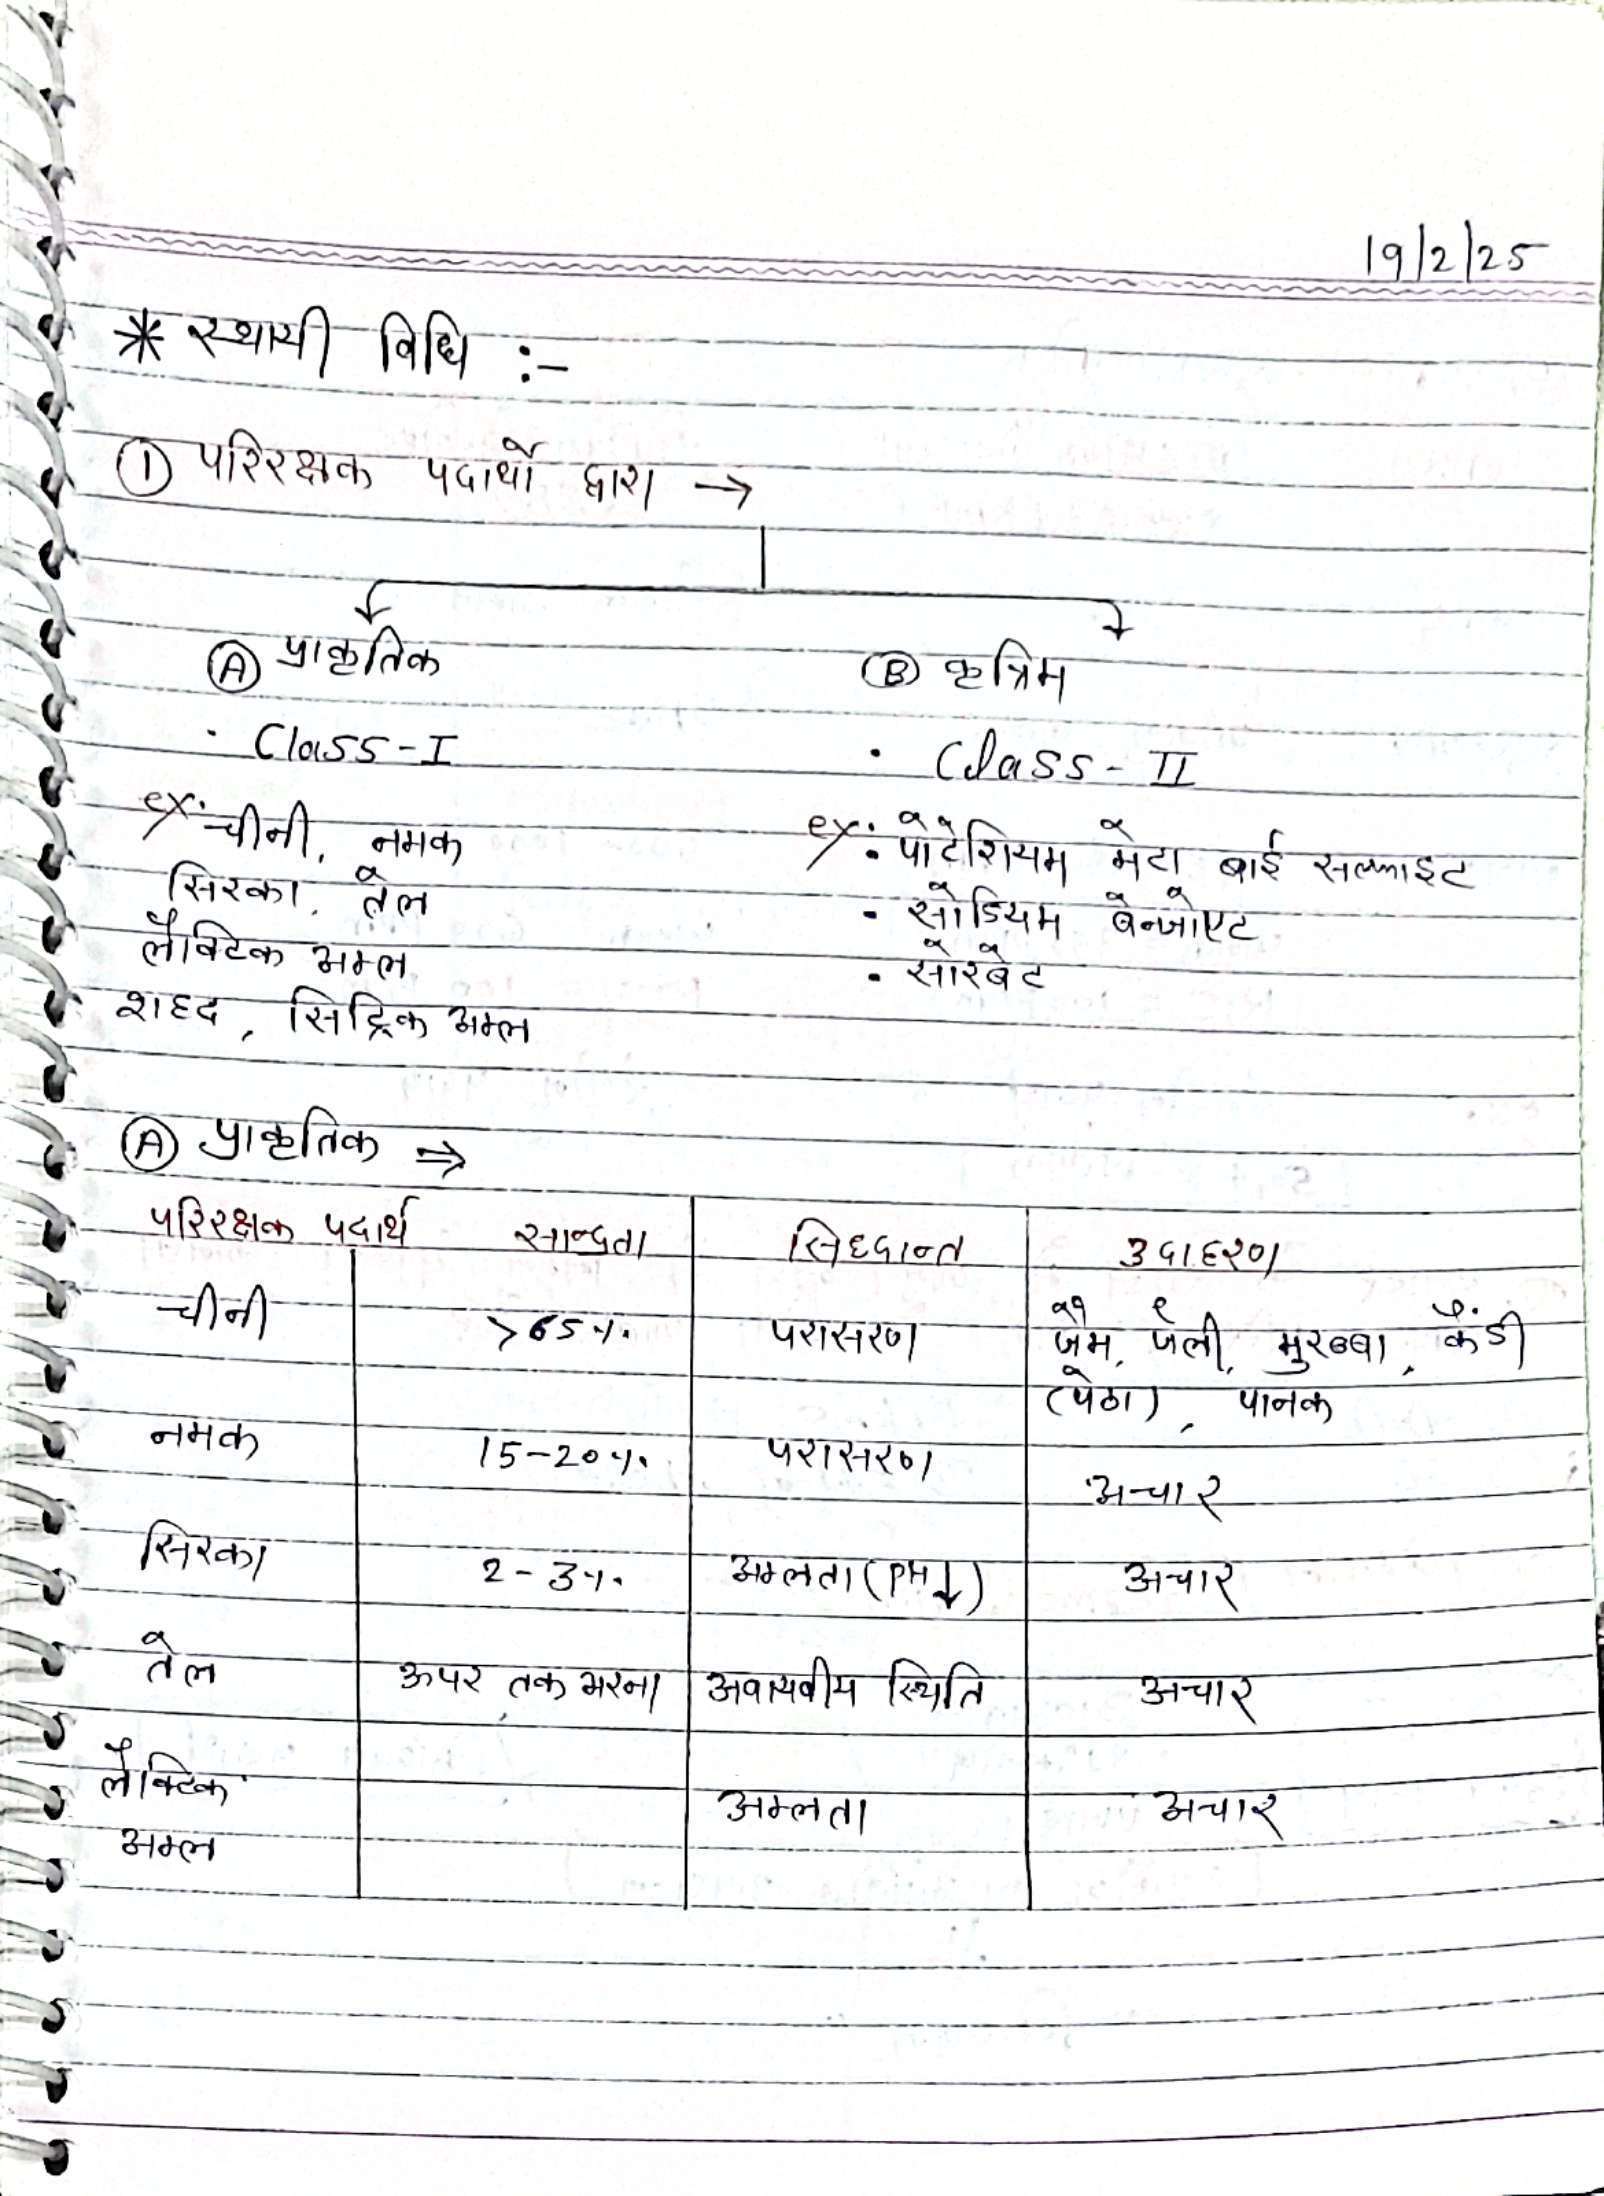 19/2/25
* स्थायी विधि :-
① परिरक्षक पदार्थो द्वारा →
Ⓐ प्राकृतिक Ⓑ कृत्रिम
· Class-I · Class-II
ex: चीनी, नमक ex: · पोटेशियम मेटा बाई सल्फाइट
सिरका, तेल · सोडियम बेन्जोएट
लैक्टिक अम्ल · सोरबेट
शहद, सिट्रिक अम्ल
Ⓐ प्राकृतिक ⇒
परिरक्षक पदार्थ सान्द्रता सिध्दान्त उदाहरण
चीनी >65% परासरण जैम, जेली, मुरब्बा, कैंडी
(पेठा), पानक
नमक 15-20% परासरण अचार
सिरका 2-3% अम्लता (PH↓) अचार
तेल ऊपर तक भरना अवायवीय स्थिति अचार
लैक्टिक अम्लता अचार
अम्ल